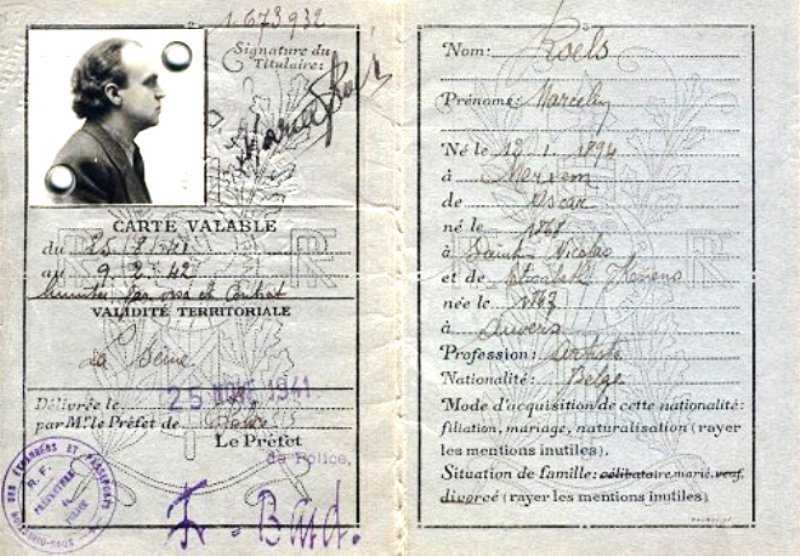 1.673932
Signature du
Titulaire:
CARTE VALABLE
du 25/8/41
au 9.2.42
VALIDITÉ TERRITORIALE
La Seine
Délivrée le 25 NOV 1941
par Mr. le Préfet de
Le Préfet
de Police,
R. F.
PRÉFECTURE
DE
POLICE
Nom: Roels
Prénoms: Marcel
Né le 12.1.1894
à Merxem
de Oscar
né le 1868
à Saint Nicolas
et de
née le 1867
à Anvers
Profession: Artiste
Nationalité: Belge
Mode d'acquisition de cette nationalité:
filiation, mariage, naturalisation (rayer
les mentions inutiles).
Situation de famille: célibataire, marié, veuf,
divorcé (rayer les mentions inutiles)